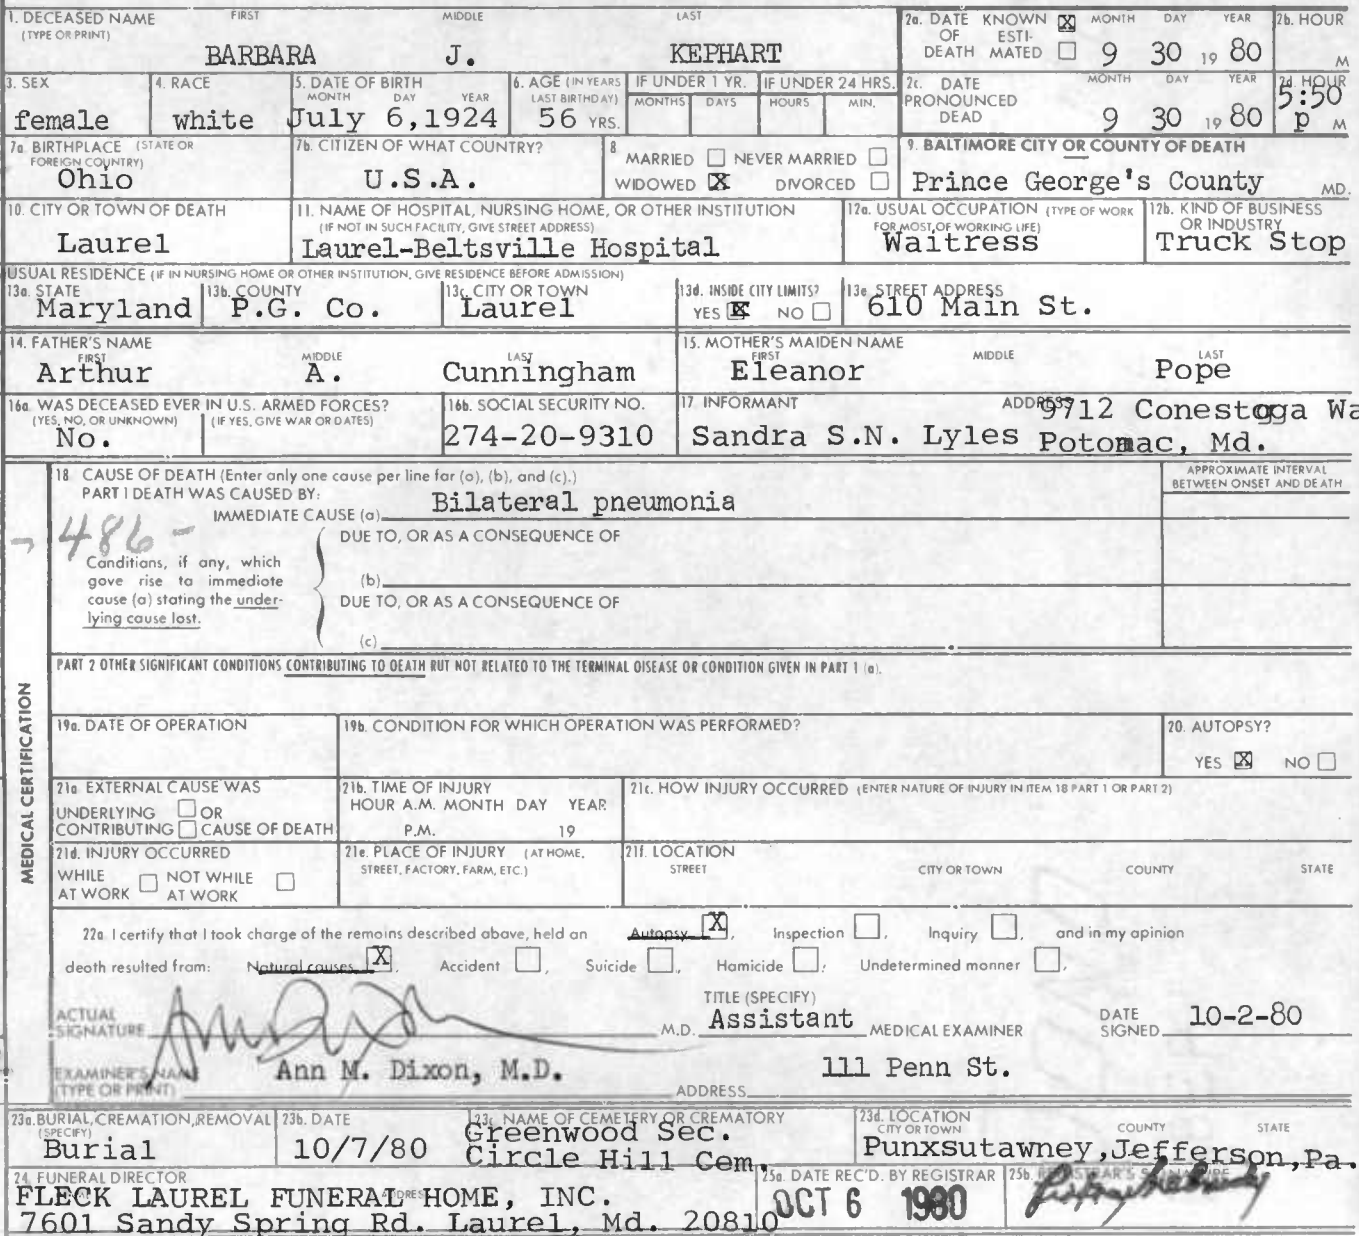 1. DECEASED NAME FIRST MIDDLE LAST
(TYPE OR PRINT)
BARBARA J. KEPHART
2a. DATE KNOWN X MONTH DAY YEAR
OF ESTI-
DEATH MATED 9 30 19 80
2b. HOUR
M
3. SEX
female
4. RACE
white
5. DATE OF BIRTH
MONTH DAY YEAR
July 6,1924
6. AGE (IN YEARS
LAST BIRTHDAY)
56 YRS.
IF UNDER 1 YR.
MONTHS DAYS
IF UNDER 24 HRS.
HOURS MIN.
2c. DATE MONTH DAY YEAR
PRONOUNCED
DEAD 9 30 19 80
2d. HOUR
5:50
p M
7a. BIRTHPLACE (STATE OR
FOREIGN COUNTRY)
Ohio
7b. CITIZEN OF WHAT COUNTRY?
U.S.A.
8
MARRIED NEVER MARRIED
WIDOWED X DIVORCED
9. BALTIMORE CITY OR COUNTY OF DEATH
Prince George's County MD.
10. CITY OR TOWN OF DEATH
Laurel
11. NAME OF HOSPITAL, NURSING HOME, OR OTHER INSTITUTION
(IF NOT IN SUCH FACILITY, GIVE STREET ADDRESS)
Laurel-Beltsville Hospital
12a. USUAL OCCUPATION (TYPE OF WORK
FOR MOST OF WORKING LIFE)
Waitress
12b. KIND OF BUSINESS
OR INDUSTRY
Truck Stop
USUAL RESIDENCE (IF IN NURSING HOME OR OTHER INSTITUTION, GIVE RESIDENCE BEFORE ADMISSION)
13a. STATE
Maryland
13b. COUNTY
P.G. Co.
13c. CITY OR TOWN
Laurel
13d. INSIDE CITY LIMITS?
YES X NO
13e. STREET ADDRESS
610 Main St.
14. FATHER'S NAME
FIRST MIDDLE LAST
Arthur A. Cunningham
15. MOTHER'S MAIDEN NAME
FIRST MIDDLE LAST
Eleanor Pope
16a. WAS DECEASED EVER IN U.S. ARMED FORCES?
(YES, NO, OR UNKNOWN) (IF YES, GIVE WAR OR DATES)
No.
16b. SOCIAL SECURITY NO.
274-20-9310
17. INFORMANT ADDRESS
9712 Conestoga Wa
Sandra S.N. Lyles Potomac, Md.
MEDICAL CERTIFICATION
18. CAUSE OF DEATH (Enter only one cause per line for (a), (b), and (c).)
PART I DEATH WAS CAUSED BY:
IMMEDIATE CAUSE (a) Bilateral pneumonia
APPROXIMATE INTERVAL
BETWEEN ONSET AND DEATH
486 -
DUE TO, OR AS A CONSEQUENCE OF
Conditions, if any, which
gave rise to immediate
cause (a) stating the under-
lying cause last.
(b)
DUE TO, OR AS A CONSEQUENCE OF
(c)
PART 2 OTHER SIGNIFICANT CONDITIONS CONTRIBUTING TO DEATH BUT NOT RELATED TO THE TERMINAL DISEASE OR CONDITION GIVEN IN PART 1 (a).
19a. DATE OF OPERATION
19b. CONDITION FOR WHICH OPERATION WAS PERFORMED?
20. AUTOPSY?
YES X NO
21a. EXTERNAL CAUSE WAS
UNDERLYING OR
CONTRIBUTING CAUSE OF DEATH
21b. TIME OF INJURY
HOUR A.M. MONTH DAY YEAR
P.M. 19
21c. HOW INJURY OCCURRED (ENTER NATURE OF INJURY IN ITEM 18 PART 1 OR PART 2)
21d. INJURY OCCURRED
WHILE NOT WHILE
AT WORK AT WORK
21e. PLACE OF INJURY (AT HOME,
STREET, FACTORY, FARM, ETC.)
21f. LOCATION
STREET CITY OR TOWN COUNTY STATE
22a. I certify that I took charge of the remains described above, held an Autopsy X, Inspection , Inquiry , and in my opinion
death resulted from: Natural causes X, Accident , Suicide , Homicide , Undetermined manner ,
ACTUAL
SIGNATURE M.D.
TITLE (SPECIFY)
Assistant MEDICAL EXAMINER
DATE
SIGNED 10-2-80
EXAMINER'S NAME
(TYPE OR PRINT) Ann M. Dixon, M.D. ADDRESS 111 Penn St.
23a. BURIAL, CREMATION, REMOVAL
(SPECIFY)
Burial
23b. DATE
10/7/80
23c. NAME OF CEMETERY OR CREMATORY
Greenwood Sec.
Circle Hill Cem.
23d. LOCATION
CITY OR TOWN COUNTY STATE
Punxsutawney, Jefferson, Pa.
24. FUNERAL DIRECTOR ADDRESS
FLECK LAUREL FUNERAL HOME, INC.
7601 Sandy Spring Rd. Laurel, Md. 20810
25a. DATE REC'D. BY REGISTRAR
OCT 6 1980
25b. REGISTRAR'S SIGNATURE